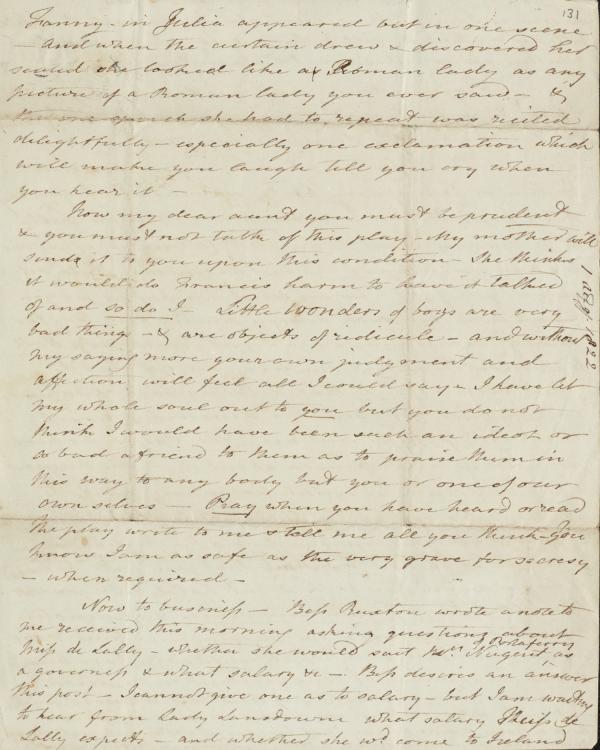 131
Fanny - in Julia appeared but in one scene
- and when the curtain drew & discovered her
seated she looked like as Roman lady as any
picture of a Roman lady you ever saw - &
the one speech she had to repeat was recited
delightfully - especially one exclamation which
will make you laugh till you cry when
you hear it -
Now my dear aunt you must be prudent
& you must not talk of this play - My mother will
send it to you upon this condition - She thinks
it would do Francis harm to have it talked
of and so do I - Little wonders of boys are very
bad things - & are objects of ridicule - and without
my saying more your own judgment and
affection will feel all I could say. I have let
my whole soul out to you but you do not
think I would have been such an ideot or
so bad a friend to them as to praise them in
this way to any body but you or one of our
own selves - Pray when you have heard or read
the play write to me & tell me all you think - You
know I am as safe as the very grave for secresy
- when required -
Now to business - Bess Ruxton wrote a note to
me received this morning asking questions about
Miss de Lally - whether she would suit Nugent as
a governess & what salary &c - Bess desires an answer
this post - I cannot give one as to salary - but I am waiting
to hear from Lady Lansdowne what salary Miss de
Lally expects - and whether she wd. come to Ireland
1822